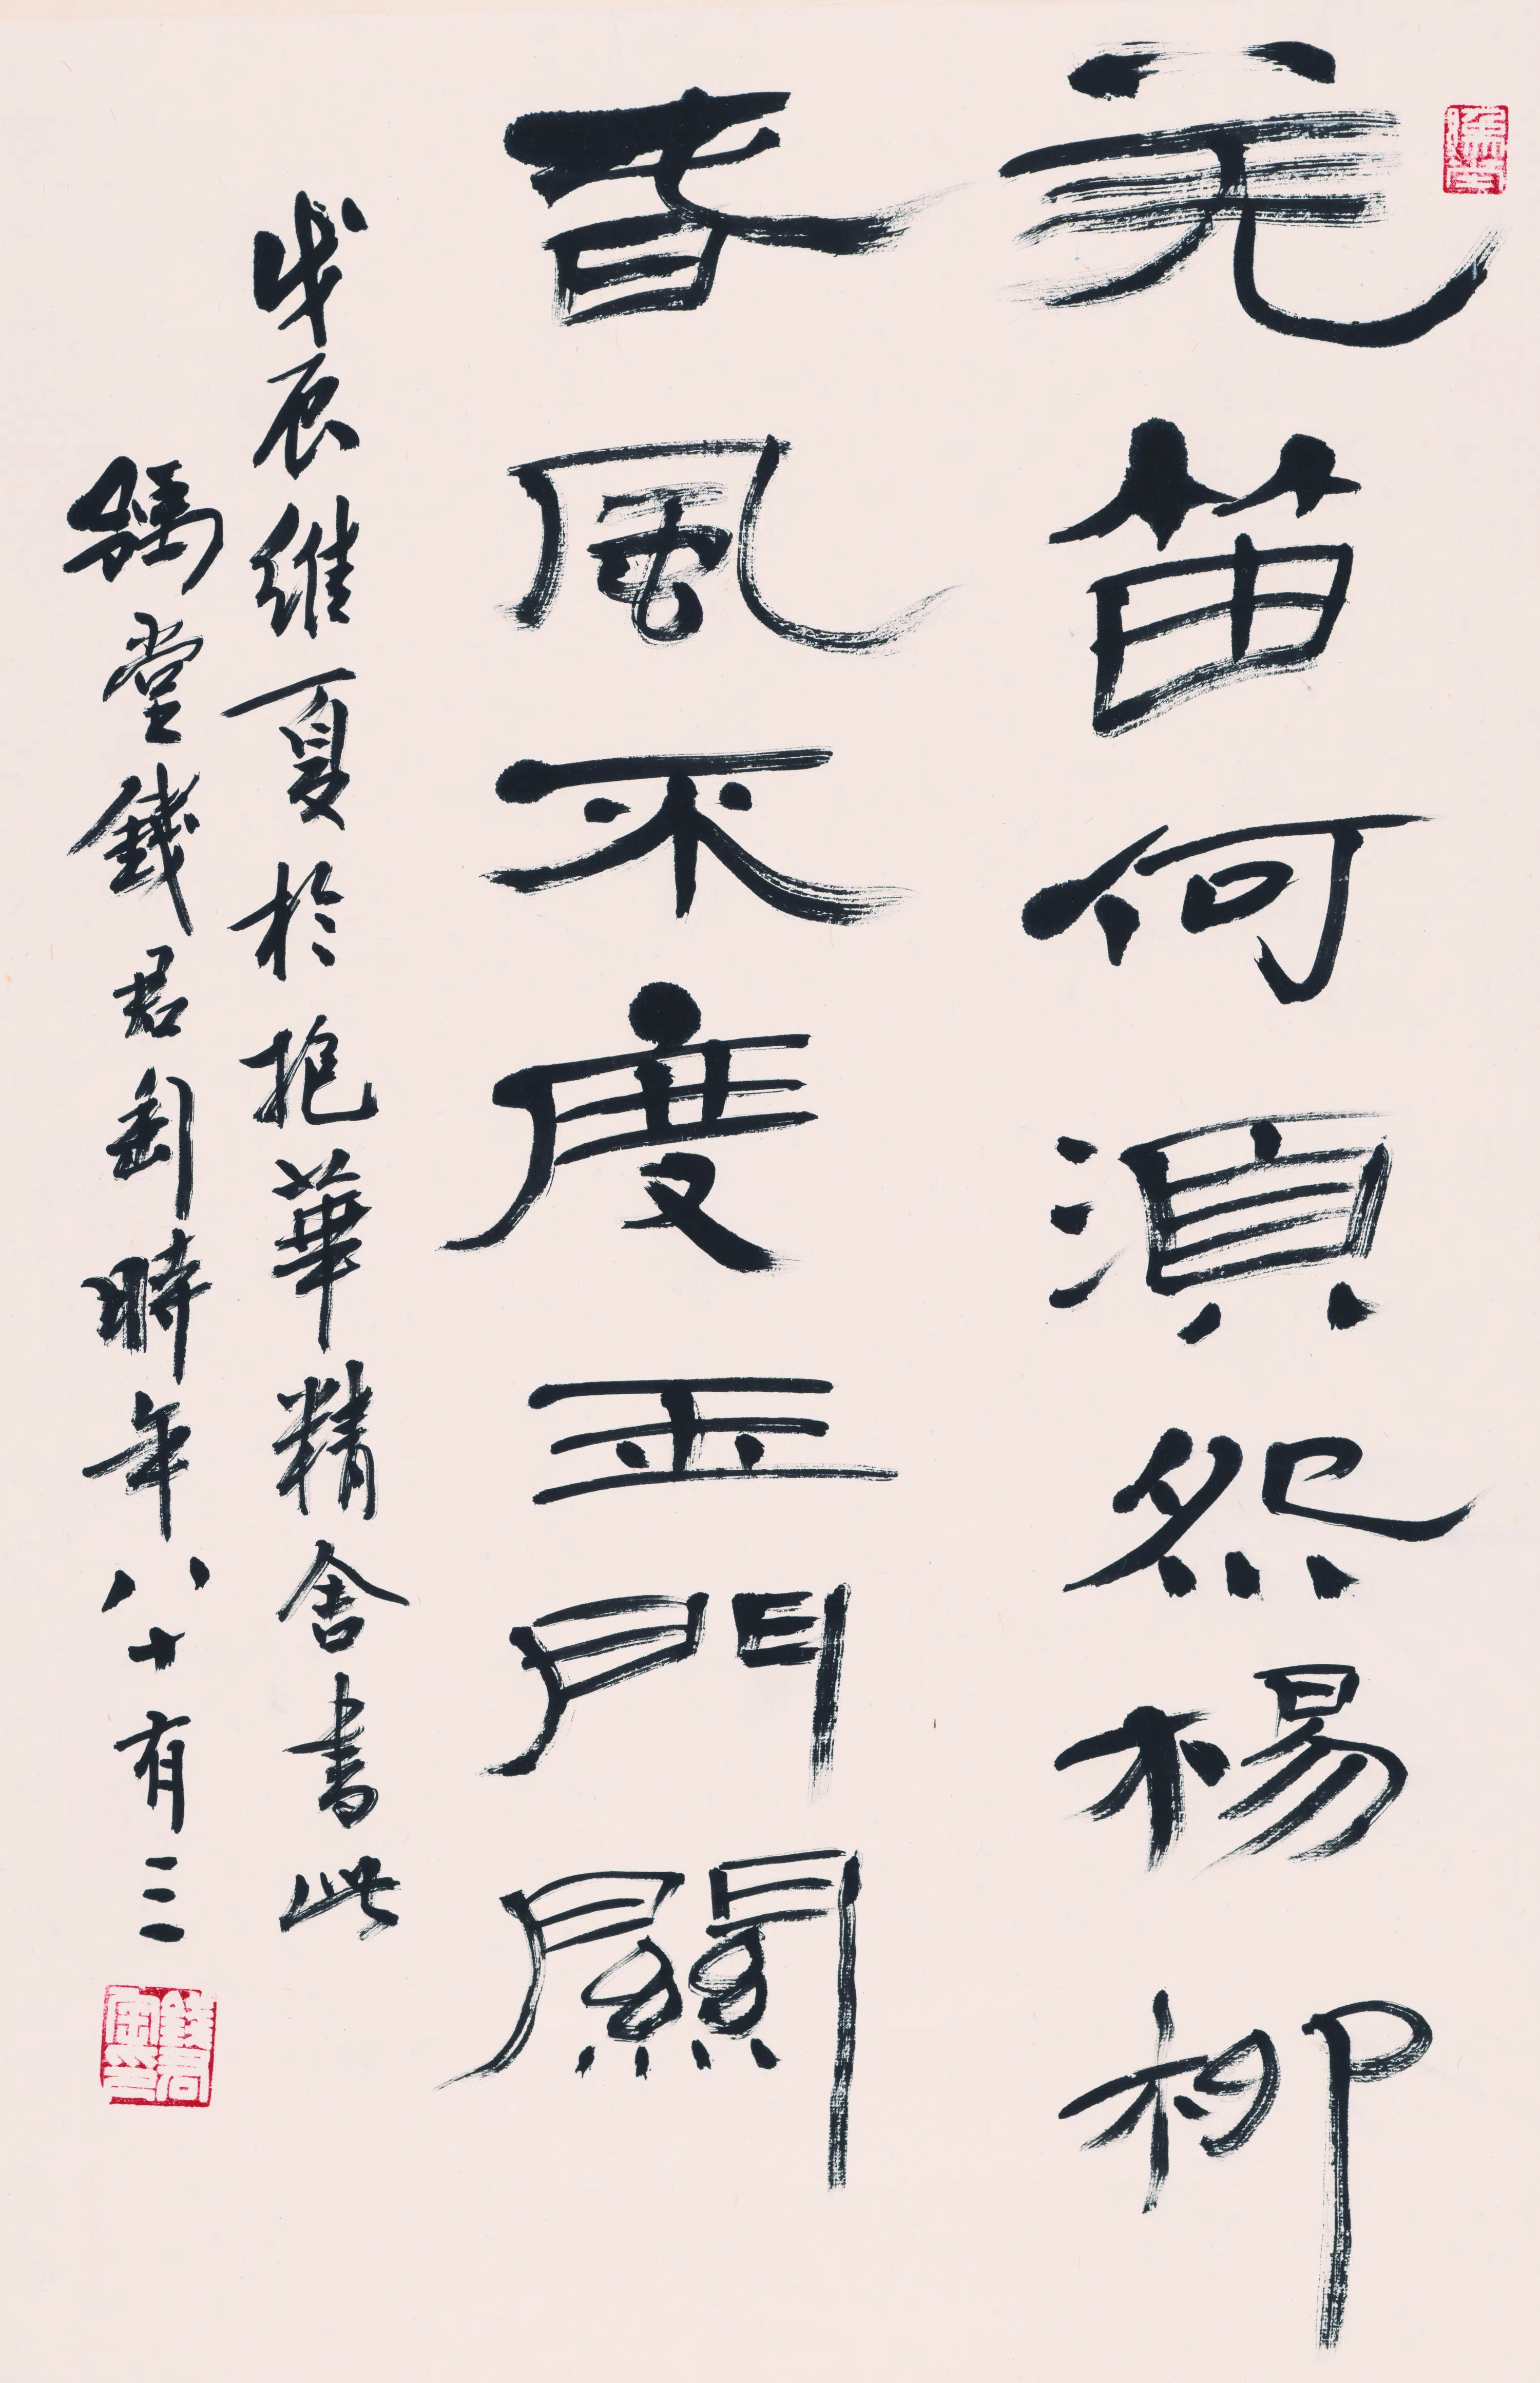 羌笛何湏怨楊柳
春風不度玉門關
戊辰維夏於抱華精舍書此
錢君匋時年八十有三
錢君匋印